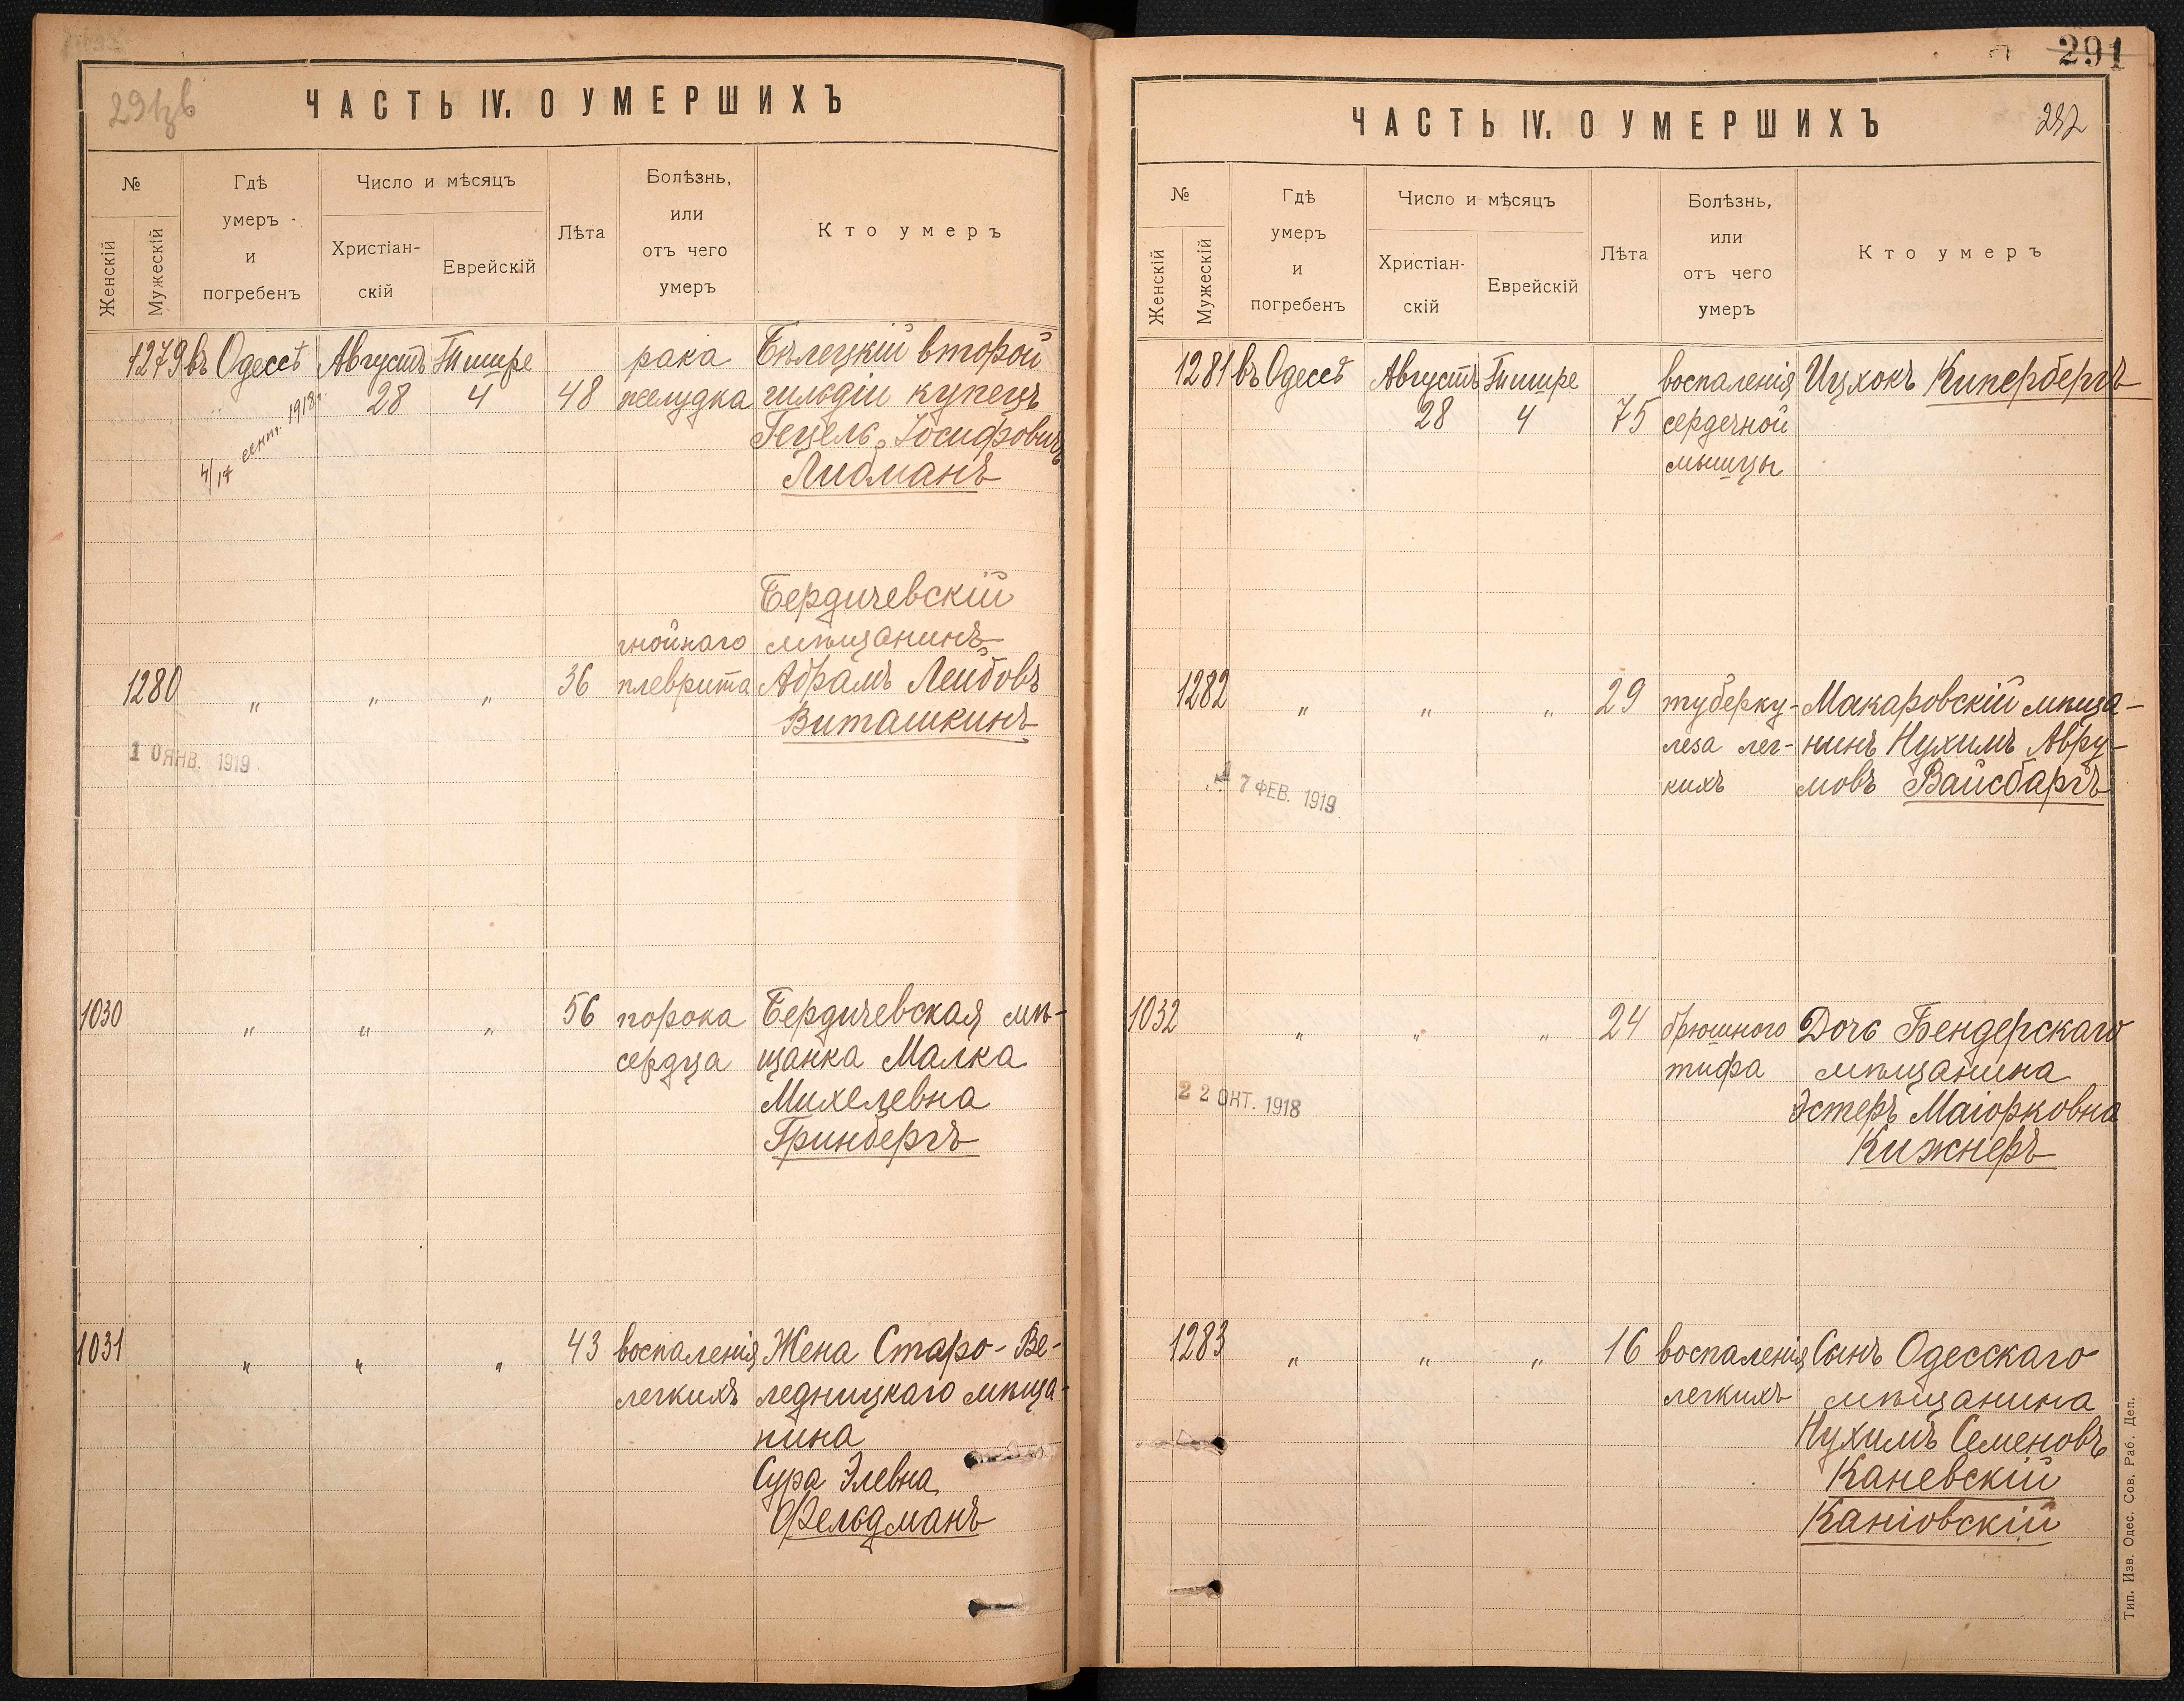 291 зв
ЧАСТЬ IV. О УМЕРШИХЪ
№
Женскій
Мужескій
Гдѣ
умеръ
и
погребенъ
Число и мѣсяцъ
Христіан-
скій
Еврейскій
Лѣта
Болѣзнь,
или
отъ чего
умеръ
Кто умеръ
1279 въ Одессѣ Августъ Тишре рака Бѣлецкій второй
28 4 48 желудка гильдіи купецъ
4/17 сент. 1918 г.
Гецель Іосифовичъ
Либманъ
Бердичевскій
гнойнаго мѣщанинъ
1280 " " " 36 плеврита Абрамъ Лейбовъ
Виташкинъ
10 ЯНВ. 1919
1030 " " " 56 порока Бердичевская мѣ-
сердца щанка Малка
Михелевна
Гринбергъ
1031 " " " 43 воспаленія Жена Старо-Ве-
легкихъ ледницкаго мѣща-
нина
Сура Элевна
Фельдманъ
291
ЧАСТЬ IV. О УМЕРШИХЪ
292
№
Женскій
Мужескій
Гдѣ
умеръ
и
погребенъ
Число и мѣсяцъ
Христіан-
скій
Еврейскій
Лѣта
Болѣзнь,
или
отъ чего
умеръ
Кто умеръ
1281 въ Одессѣ Августъ Тишре воспаленія Ицхокъ Кипербергъ
28 4 75 сердечной
мышцы
1282 " " " 29 туберку- Макаровскій мѣща-
леза лег- нинъ Нухимъ Авру-
кихъ мовъ Вайсбаргъ
17 ФЕВ. 1919
1032 " " " 24 брюшного Дочь Бендерскаго
тифа мѣщанина
22 ОКТ. 1918
Эстеръ Маіорковна
Кижнеръ
1283 " " " 16 воспаленія Сынъ Одесскаго
легкихъ мѣщанина
Нухимъ Семеновъ
Каневскій
Каніовскій
Тип. Изв. Одес. Сов. Раб. Деп.